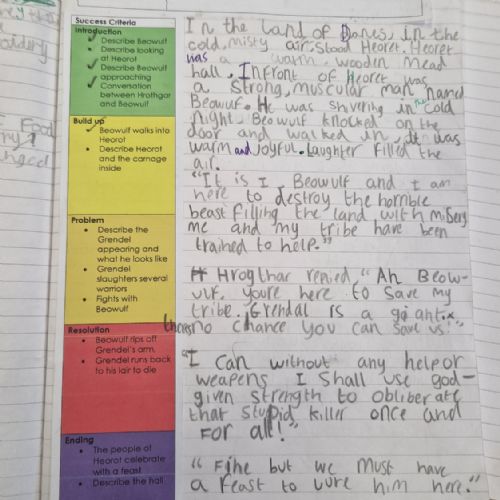 Success Criteria
Introduction
Describe Beowulf
Describe looking
at Heorot
Describe Beowulf
approaching
Conversation
between Hrothgar
and Beowulf
Build up
Beowulf walks into
Heorot
Describe Heorot and
the carnage
inside
Problem
Describe the
Grendel
appearing and
what he looks like
Grendel
slaughters several
warriors
Fights with
Beowulf
Resolution
Beowulf rips off
Grendel's arm.
Grendel runs back
to his lair to die
Ending
The people of
Heorot celebrate
with a feast
Describe the hall
In the Land of Danes, in the
cold, misty air, stood Heorot. Heorot
was a warm, wooden mead
hall. Infront of Heorot was
a strong, muscular man named
Beowulf. He was shivering in the cold
night. Beowulf knocked on the
door and walked in. It was
warm and joyful. Laughter filled the
air.
"It is I, Beowulf and I am
here to destroy the horrible
beast filling the land with misery
me and my tribe have been
trained to help."
Hrogthar replied, "Ah Beow-
ulf, youre here to save my
tribe. Grendal is a giant.
theres no chance you can save us!"
"I can without any help or
weapens I shall use god-
given strength to obliberate
that stupid killer once and
for all!"
"Fine but we must have
a feast to lure him here."